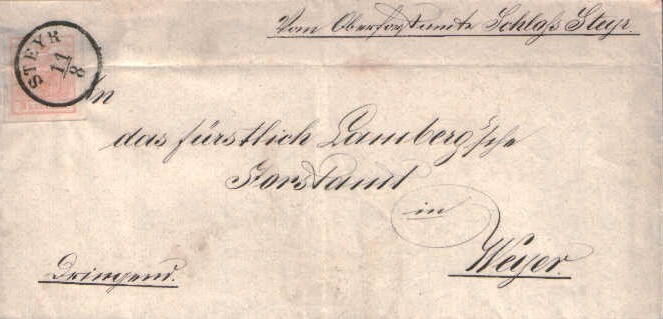 Vom Oberforstamte Schloß Steyr.
STEYR
11/8
An
das fürstlich Lamberg'sche
Forstamt
in
Weyer.
Dringend.